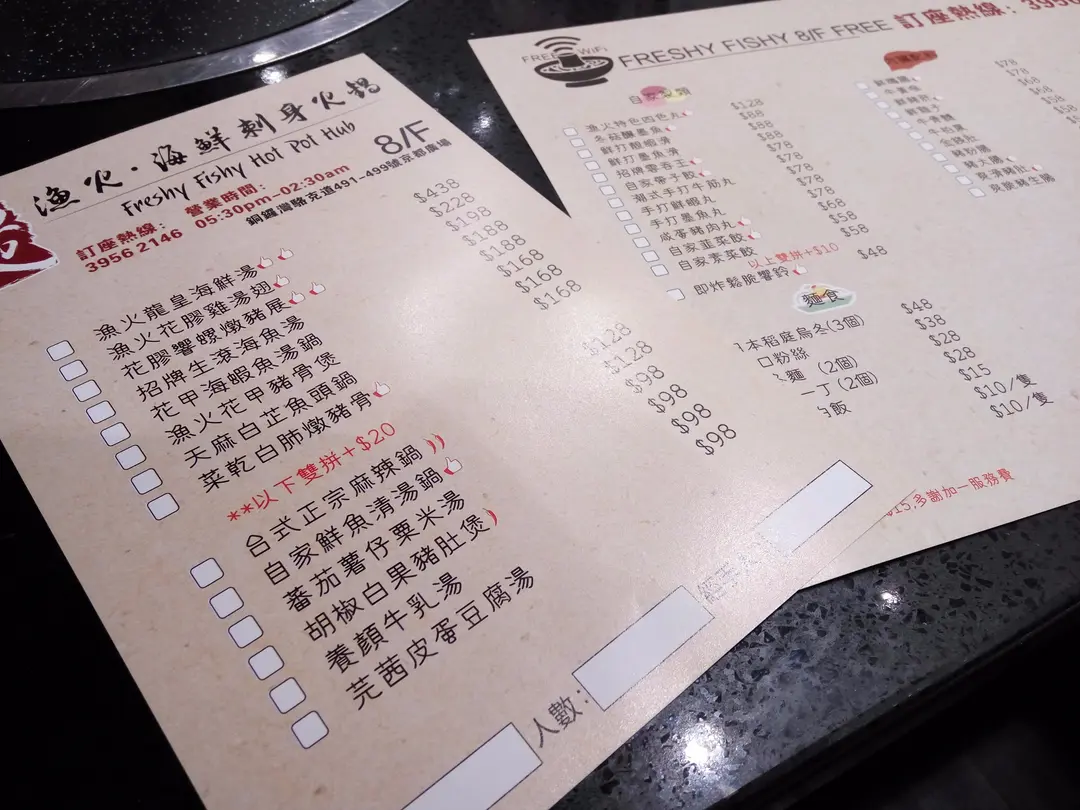 漁火·海鮮刺身火鍋
Freshy Fishy Hot Pot Hub
8/F
訂座熱線:
3956 2146
營業時間:
05:30pm-02:30am
銅鑼灣駱克道491-499號京都廣場
漁火龍皇海鮮湯
$438
漁火花膠雞湯翅
$228
花膠響螺燉豬展
$198
招牌生滾海魚湯
$188
花甲海蝦魚湯鍋
$188
漁火花甲豬骨煲
$168
天麻白芷魚頭鍋
$168
菜乾白肺燉豬骨
$168
**以下雙拼+$20
台式正宗麻辣鍋
$128
自家鮮魚清湯鍋
$128
蕃茄薯仔粟米湯
$98
胡椒白果豬肚煲
$98
養顏牛乳湯
$98
芫茜皮蛋豆腐湯
$98
人數:
FREE WiFi
FRESHY FISHY 8/F FREE
訂座熱線: 3956
漁火特色四色丸
$128
冬菇釀墨魚
$88
鮮打蝦滑
$88
鮮打墨魚滑
$88
招牌雲吞王
$78
自家帶子餃
$78
潮式手打牛筋丸
$78
手打鮮蝦丸
$78
手打墨魚丸
$78
咸蛋豬肉丸
$68
自家韮菜餃
$58
自家素菜餃
$58
以上雙拼+$10
即炸鬆脆響鈴
$48
麵食
本稻庭烏冬(3個)
$48
粉絲
$38
麵 (2個)
$28
丁(2個)
$28
飯
$15
$10/隻
$10/隻
$15,多謝加一服務費
$78
$78
$68
$68
$58